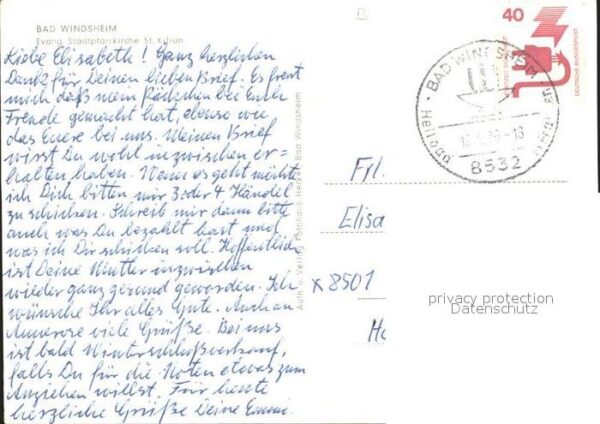 BAD WINDSHEIM
Evang. Stadtpfarrkirche St. Kilian
Liebe Elisabeth! Ganz herzlichen
Dank für Deinen lieben Brief. Es freut
mich daß mein Päckchen bei Euch
Freude gemacht hat, ebenso wie
das Euere bei uns. Meinen Brief
wirst Du wohl inzwischen er=
halten haben. Wenn es geht möchte
ich Dich bitten mir 3 oder 4 Händel
zu schicken. Schreib mir dann bitte
auch was Du bezahlt hast und
was ich Dir schicken soll. Hoffentlich
ist Deine Mutter inzwischen
wieder ganz gesund geworden. Ich
wünsche Ihr alles Gute. Auch an
Annerose viele Grüße. Bei uns
ist bald Winterschlußverkauf,
falls Du für die Noten etwas zum
Anziehen willst. Für heute
herzliche Grüße Deine Emmi.
Aufn. u. Verlag Fotohaus Heckel Bad Windsheim
40
DEUTSCHE BUNDESPOST
BAD WINDSHEIM
8532
Frl.
Elisa
x 8501
Ha
privacy protection
Datenschutz